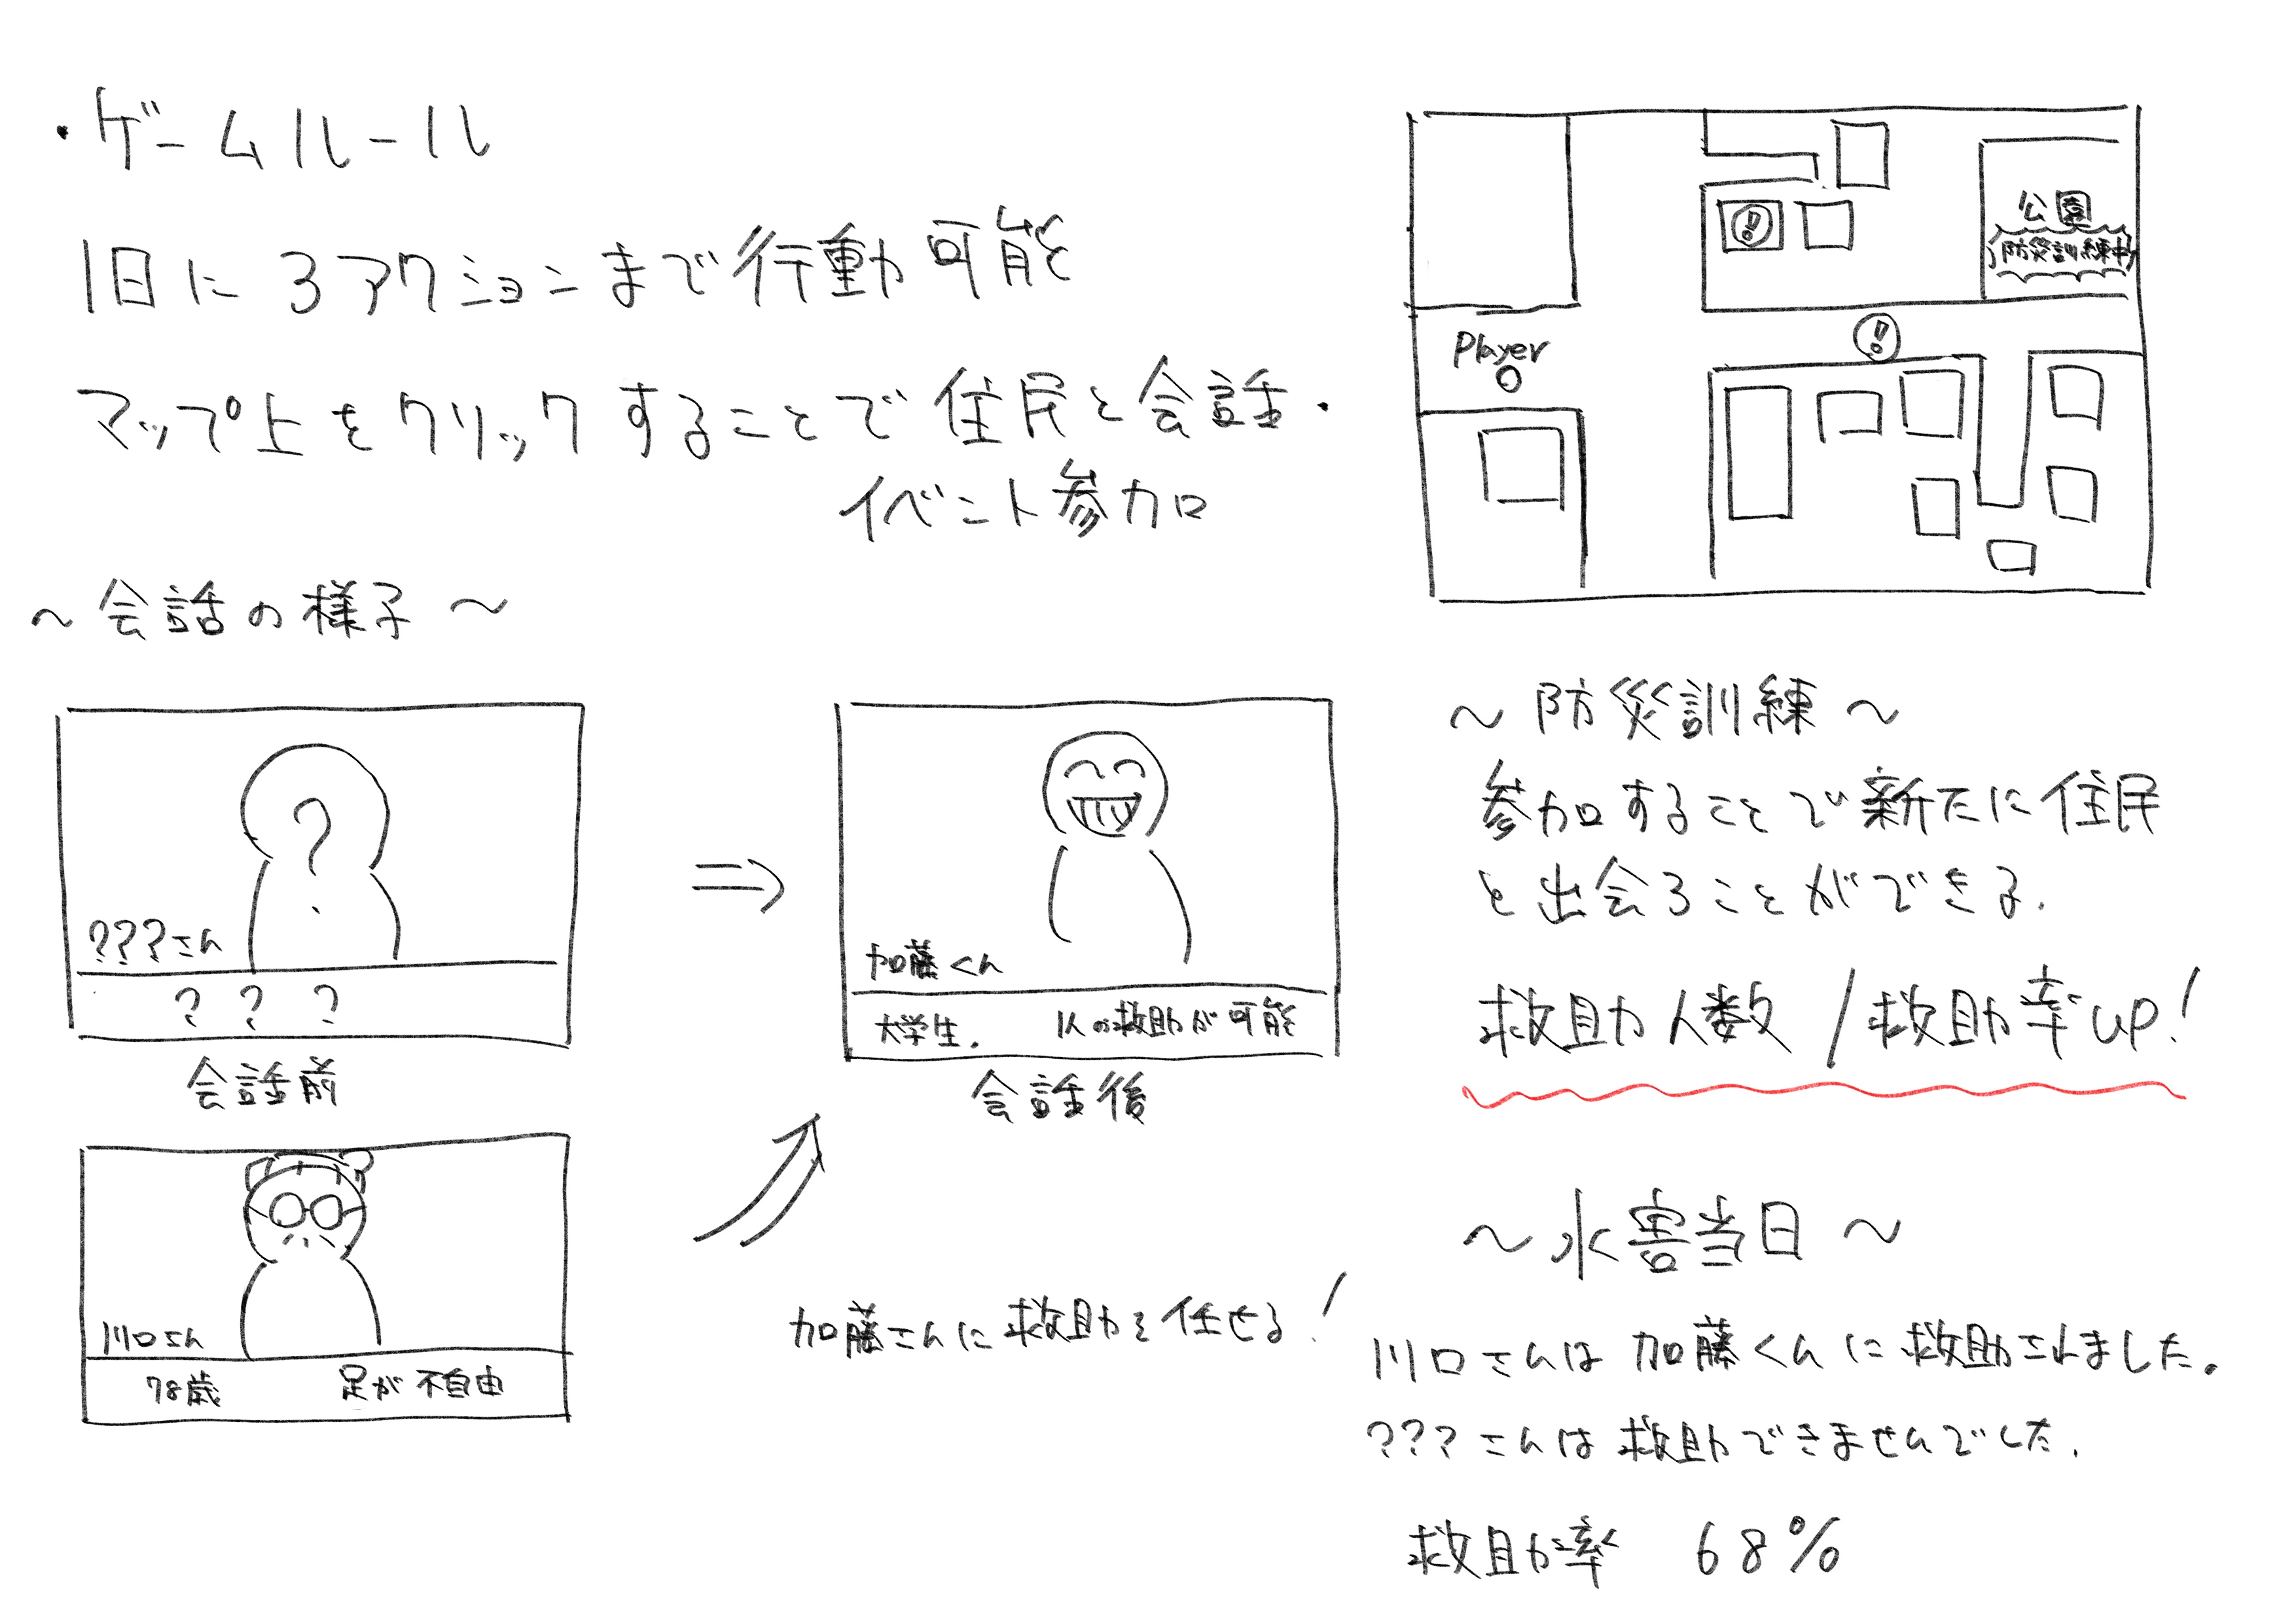 ・ゲームルール
1日に3アクションまで行動可能
マップ上をクリックすることで住民と会話・
イベント参加
公園
防災訓練中
!
Player
!
~会話の様子~
?
???さん
? ? ?
会話前
⇒
加藤くん
大学生. 1人の救助が可能
会話後
川口さん
78歳 足が不自由
加藤さんに救助を任せる!
~防災訓練~
参加することで新たに住民
と出会うことができる.
救助人数/救助率up!
~水害当日~
川口さんは加藤くんに救助されました。
???さんは救助できませんでした.
救助率 68%